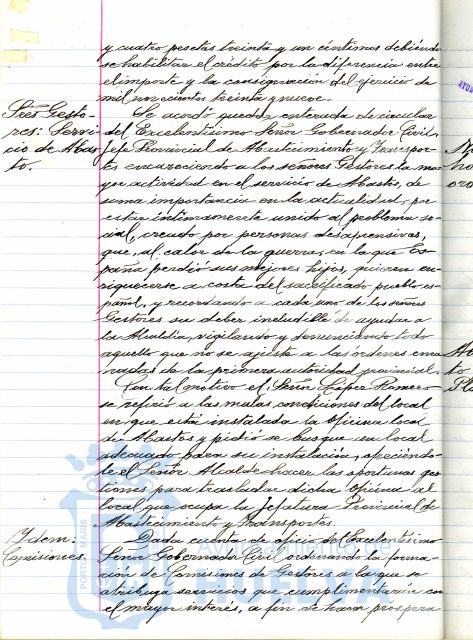 y cuatro pesetas treinta y un céntimos debiendo
se habilitar el crédito por la diferencia entre
el importe y la consignación del ejercicio de
mil novecientos treinta y nueve.
Sres Gesto-
res: Servi-
cio de Abas
to.
Se acordó quedar enterada de circular
del Excelentísimo Señor Gobernador Civil,
Jefe Provincial de Abastecimiento y Transpor-
tes encareciendo a los señores Gestores la ma-
yor actividad en el servicio de Abastos, de
suma importancia en la actualidad, por
estar íntimamente unido al problema so-
cial, creado por personas desaprensivas,
que, al calor de la guerra, en la que Es-
paña perdió sus mejores hijos, quieren en-
riquecerse a costa del sacrificado pueblo es-
pañol, y recordando a cada uno de los señores
Gestores su deber ineludible de ayudar a
la Alcaldía, vigilando y denunciando todo
aquello que no se ajuste a las órdenes ema
nadas de la primera autoridad provincial.
Con tal motivo el Señor López Romero
se refirió a las malas condiciones del local
en que está instalada la Oficina local
de Abastos y pidió se busque un local
adecuado para su instalación, ofreciéndo-
le el Señor Alcalde hacer las oportunas ges
tiones para trasladar dicha Oficina al
local que ocupa la Jefatura Provincial de
Abastecimiento y Transportes.
Idem:
Comisiones.
Dada cuenta de oficio del Excelentísimo
Señor Gobernador Civil ordenando la forma-
ción de Comisiones de Gestores a la que se
atribuya servicios que cumplimentarán con
el mayor interés, a fin de hacer prospera